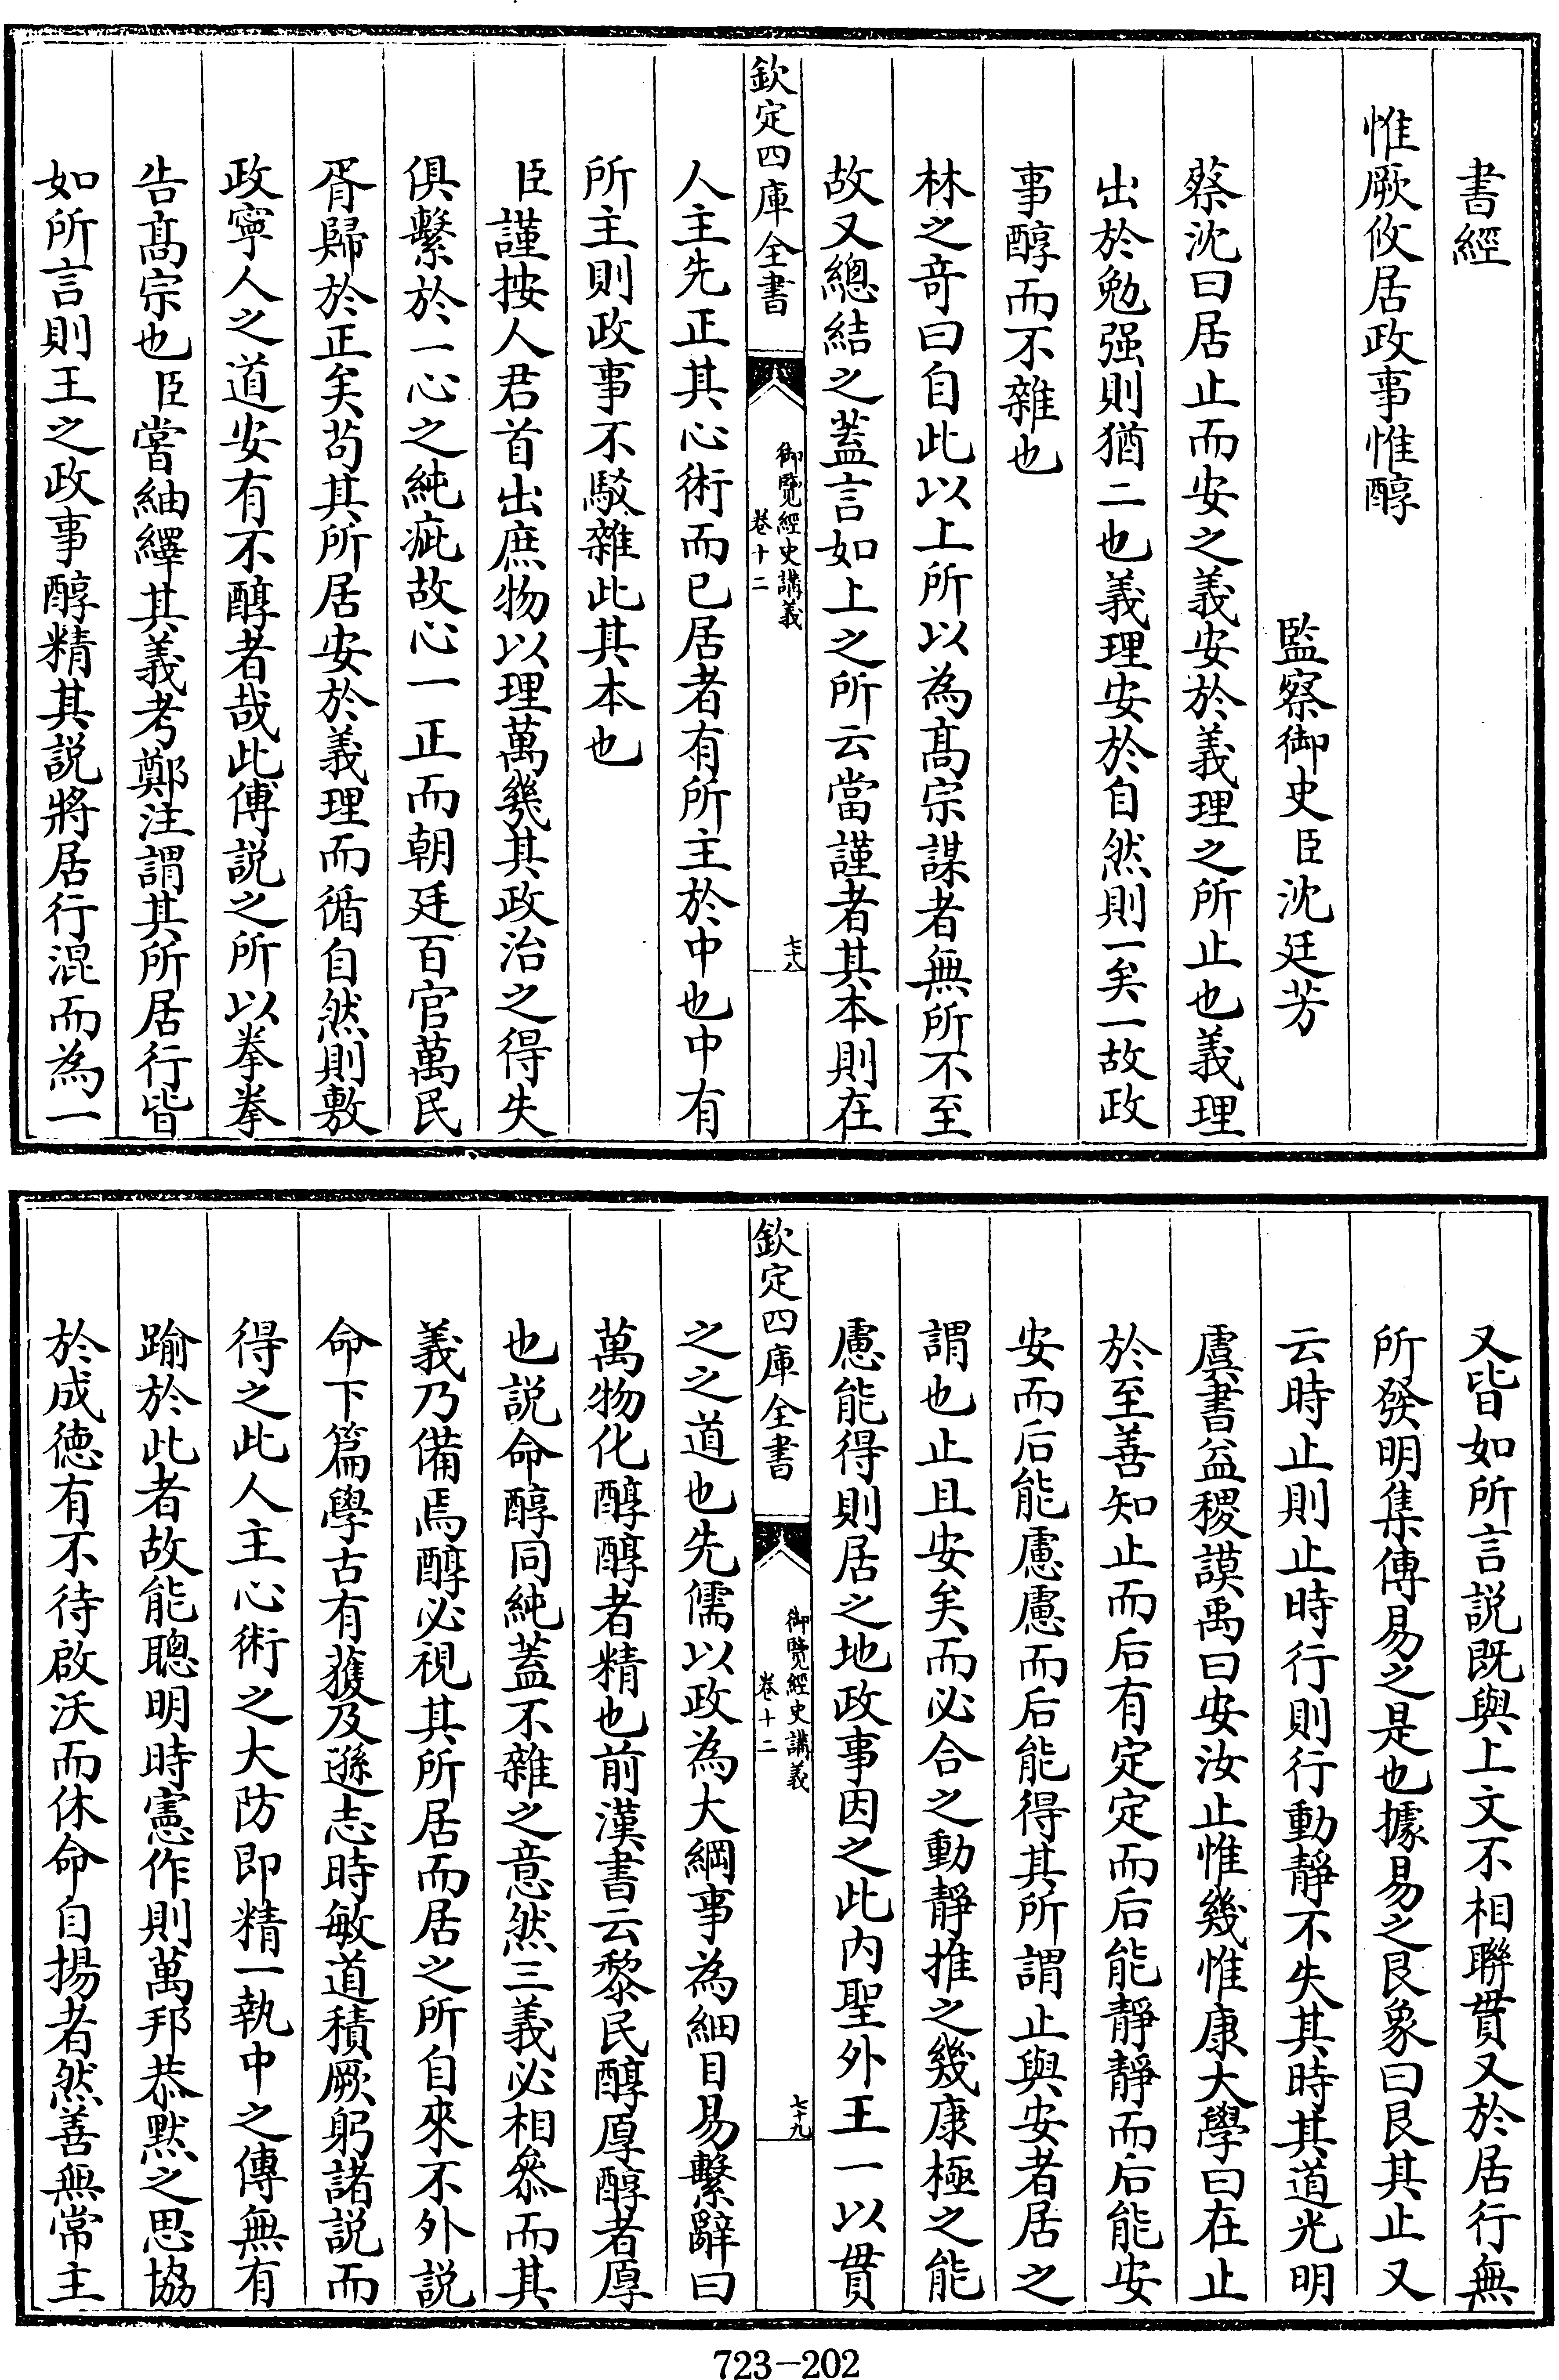 書經
惟厥攸居政事惟醇
監察御史臣沈廷芳
蔡沈曰居止而安之義安於義理之所止也義理
出於勉强則猶二也義理安於自然則一矣一故政
事醇而不雜也
林之奇曰自此以上所以為髙宗謀者無所不至
故又總結之葢言如上之所云當謹者其本則在
欽定四庫全書
御覽經史講義
卷十二
七十八
人主先正其心術而已居者有所主於中也中有
所主則政事不駁雜此其本也
臣謹按人君首出庶物以理萬幾其政治之得失
俱繫於一心之純疵故心一正而朝廷百官萬民
胥歸於正矣茍其所居安於義理而循自然則敷
政寧人之道安有不醇者哉此傅説之所以拳拳
告髙宗也臣嘗紬繹其義考鄭注謂其所居行皆
如所言則王之政事醇精其説將居行混而為一
又皆如所言説既與上文不相聯貫又於居行無
所發明集傳易之是也據易之艮彖曰艮其止又
云時止則止時行則行動靜不失其時其道光明
虞書益稷謨禹曰安汝止惟幾惟康大學曰在止
於至善知止而后有定定而后能靜靜而后能安
安而后能慮慮而后能得其所謂止與安者居之
謂也止且安矣而必合之動靜推之幾康極之能
慮能得則居之地政事因之此内聖外王一以貫
欽定四庫全書
御覽經史講義
卷十二
七十九
之之道也先儒以政為大綱事為細目易繫辭曰
萬物化醇醇者精也前漢書云黎民醇厚醇者厚
也説命醇同純葢不雜之意然三義必相叅而其
義乃備焉醇必視其所居而居之所自來不外説
命下篇學古有獲及遜志時敏道積厥躬諸説而
得之此人主心術之大防即精一執中之傳無有
踰於此者故能聰明時憲作則萬邦恭黙之思協
於成徳有不待啟沃而休命自揚者然善無常主
723-202